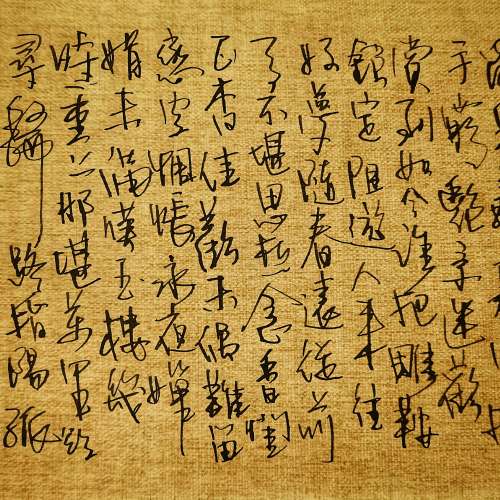 手窮艷景迷歡
賞到如今誰把雕鞍
鎖定阻遊人來往
好夢隨春遠從前
事不堪思想念香閨
正杳佳歡未偶難留
戀空惆悵永夜嬋
娟未滿嘆玉樓幾
時重上那堪萬里卻
尋歸路指陽孤